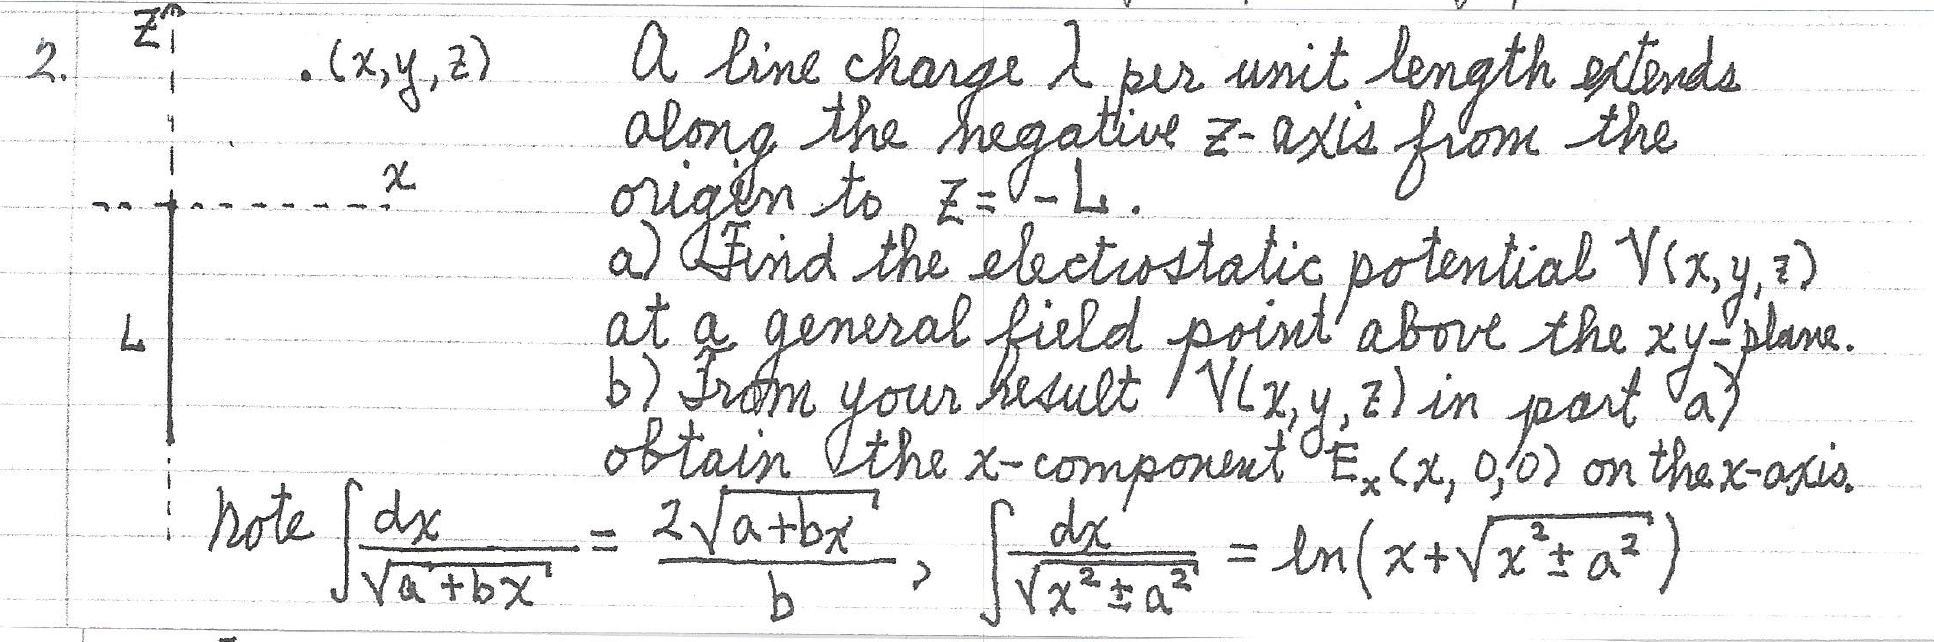 2. z .(x,y,z) A line charge λ per unit length extends
along the negative z-axis from the
x
origin to z = -L.
a) Find the electrostatic potential V(x,y,z)
L at a general field point above the xy-plane.
b) From your result V(x,y,z) in part a)
obtain the x-component E_x(x,0,0) on the x-axis.
Note ∫ dx/√(a+bx) = 2√(a+bx)/b , ∫ dx/√(x²±a²) = ln(x+√(x²±a²))